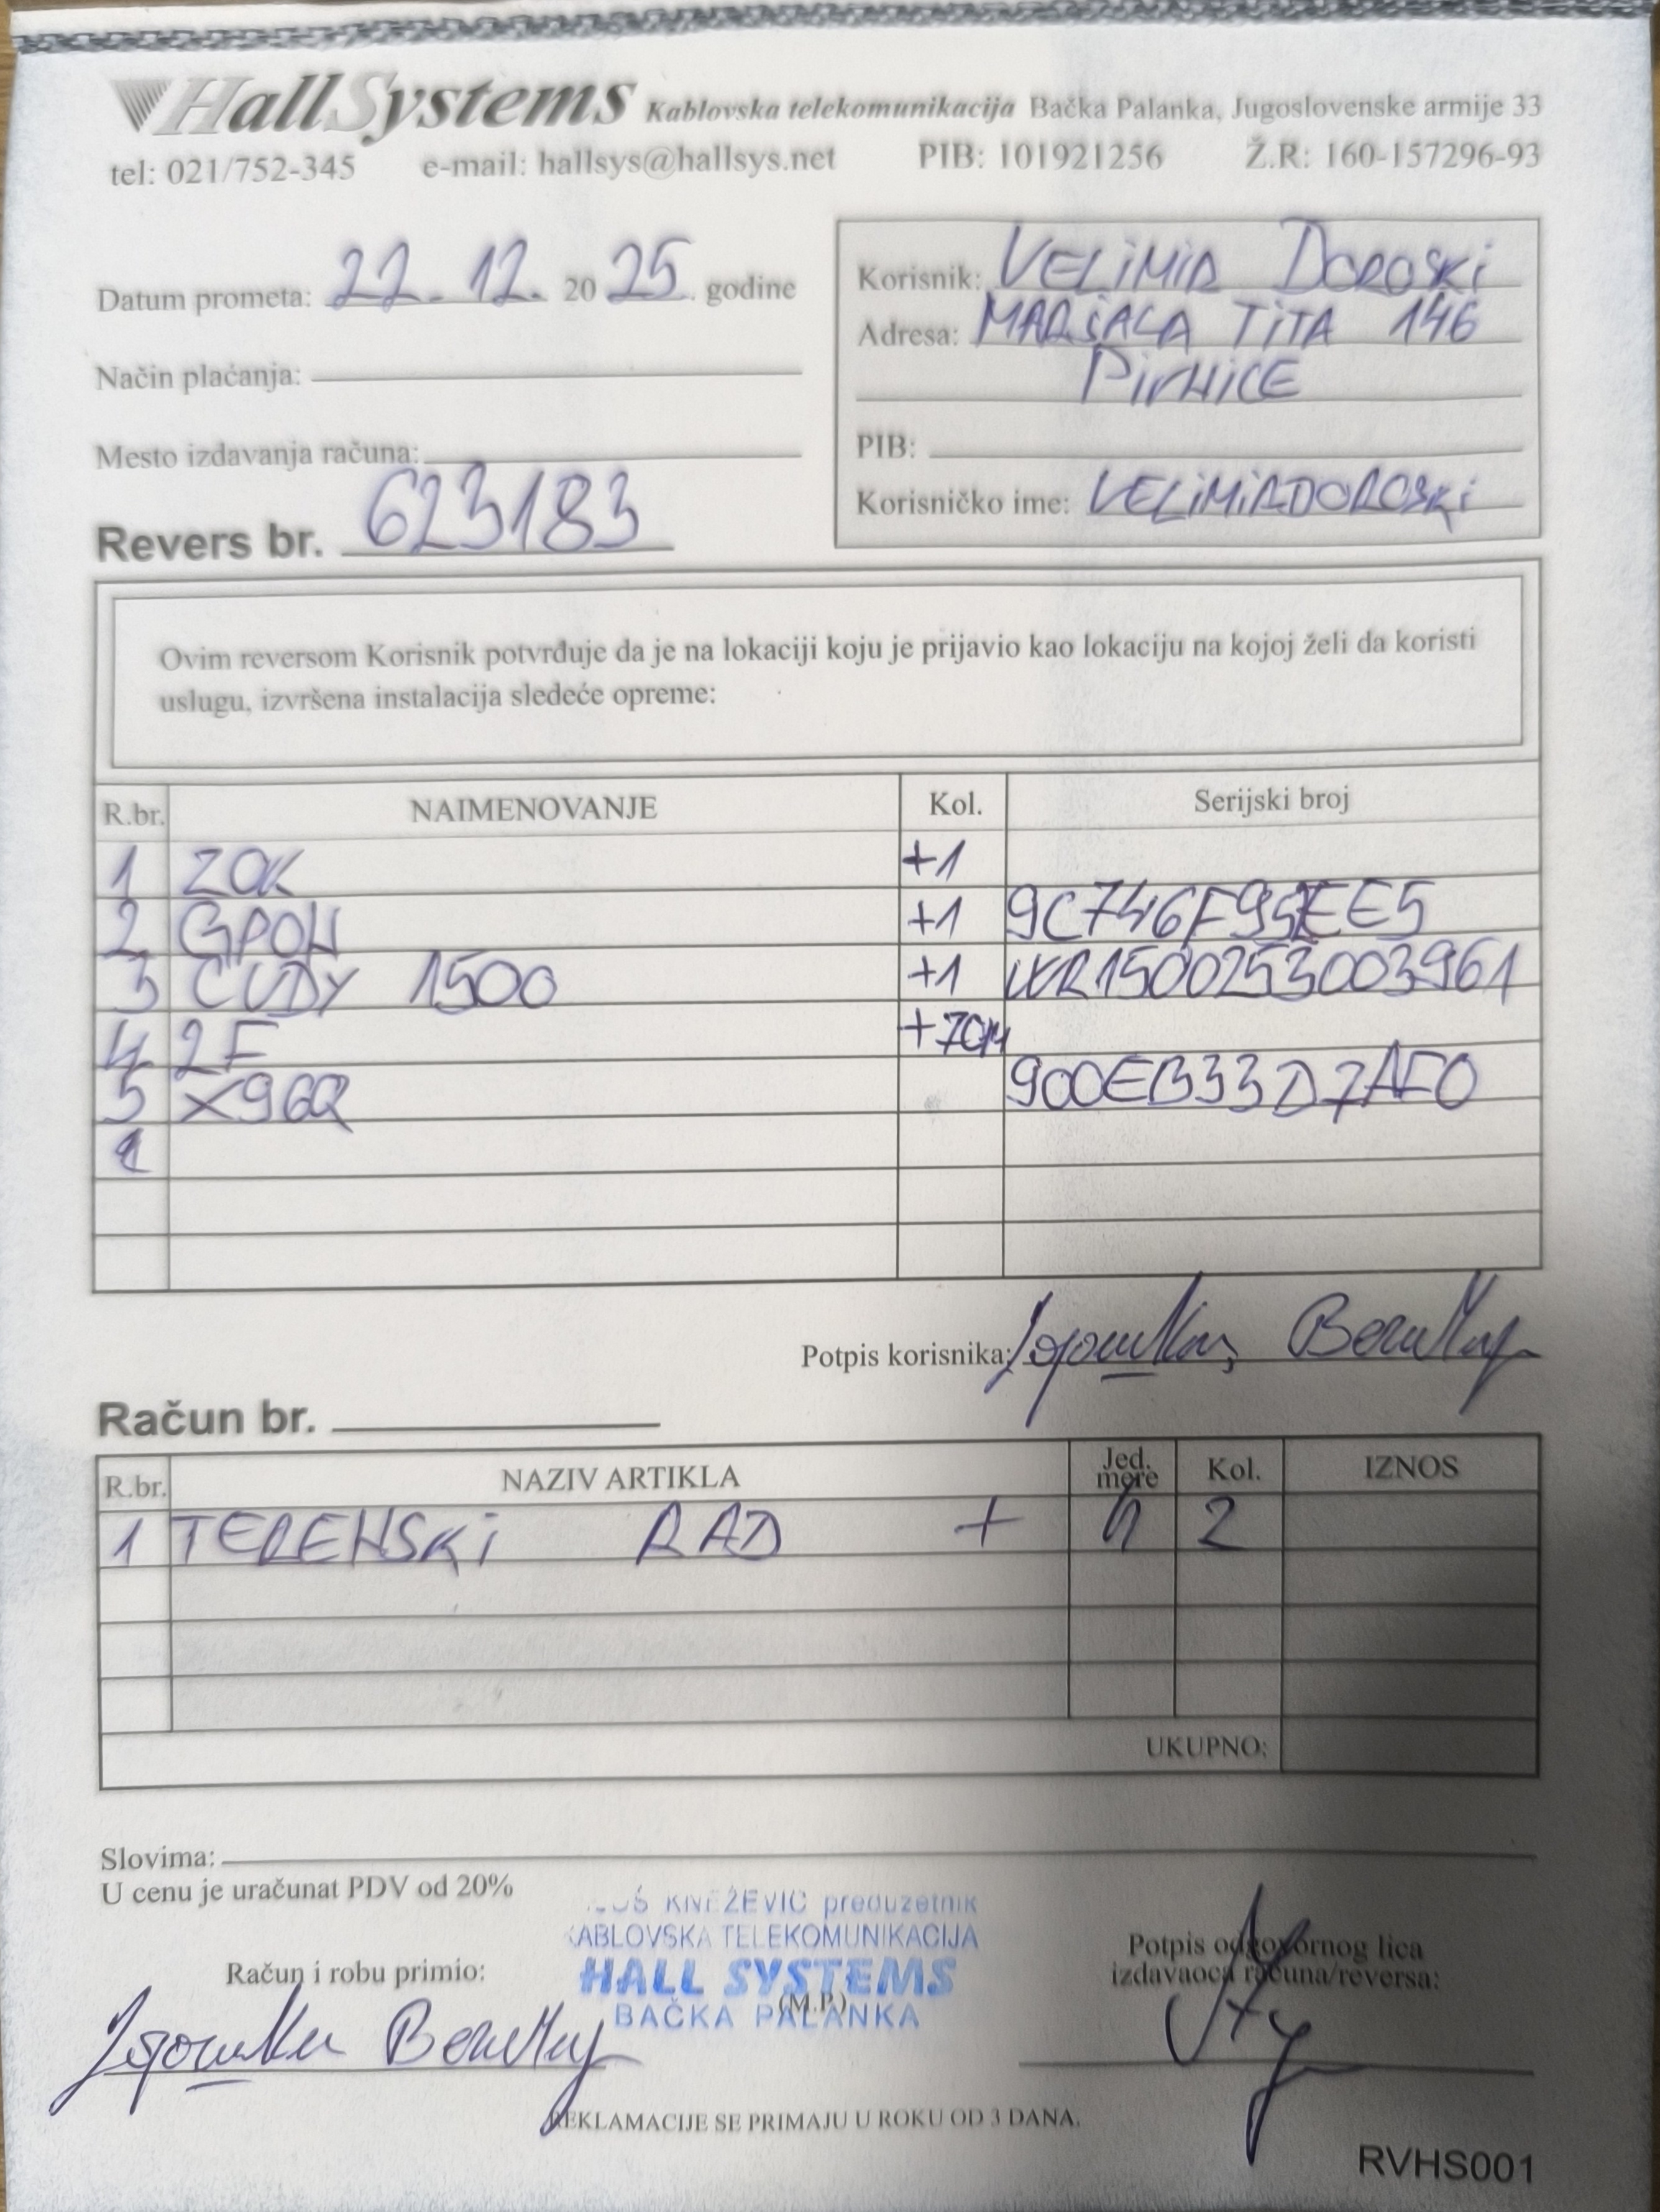 HallSystems Kablovska telekomunikacija Bačka Palanka, Jugoslovenske armije 33
tel: 021/752-345 e-mail: hallsys@hallsys.net PIB: 101921256 Ž.R: 160-157296-93
Datum prometa: 22. 12. 2025. godine
Način plaćanja:
Mesto izdavanja računa:
Revers br. 623183
Korisnik: VELIMIR DOROSKI
Adresa: MARŠALA TITA 146
PIVNICE
PIB:
Korisničko ime: VELIMIRDOROSKI
Ovim reversom Korisnik potvrđuje da je na lokaciji koju je prijavio kao lokaciju na kojoj želi da koristi
uslugu, izvršena instalacija sledeće opreme:
R.br. NAIMENOVANJE Kol. Serijski broj
1 ZOK +1
2 GPON +1
3 CUDY 1500 +1 WR1500253003961
4 2F +70M
5 X96Q 900EB33D7AF0
Potpis korisnika:
Račun br.
R.br. NAZIV ARTIKLA Jed. mere Kol. IZNOS
1 TERENSKI RAD + h 2
UKUPNO:
Slovima:
U cenu je uračunat PDV od 20%
KNEŽEVIĆ preduzetnik
KABLOVSKA TELEKOMUNIKACIJA
HALL SYSTEMS
(M.P.)
BAČKA PALANKA
Račun i robu primio:
Potpis odgovornog lica
izdavaoca računa/reversa:
REKLAMACIJE SE PRIMAJU U ROKU OD 3 DANA.
RVHS001